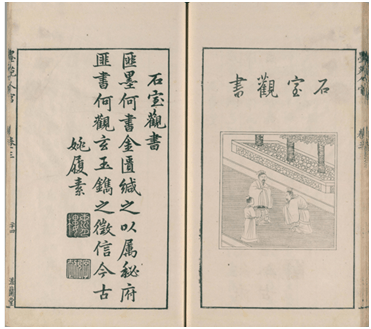 石室觀書
石室觀書
匪墨何書金匱緘之以属秘府
匪書何觀玄玉鐫之徵信今古
姚履素